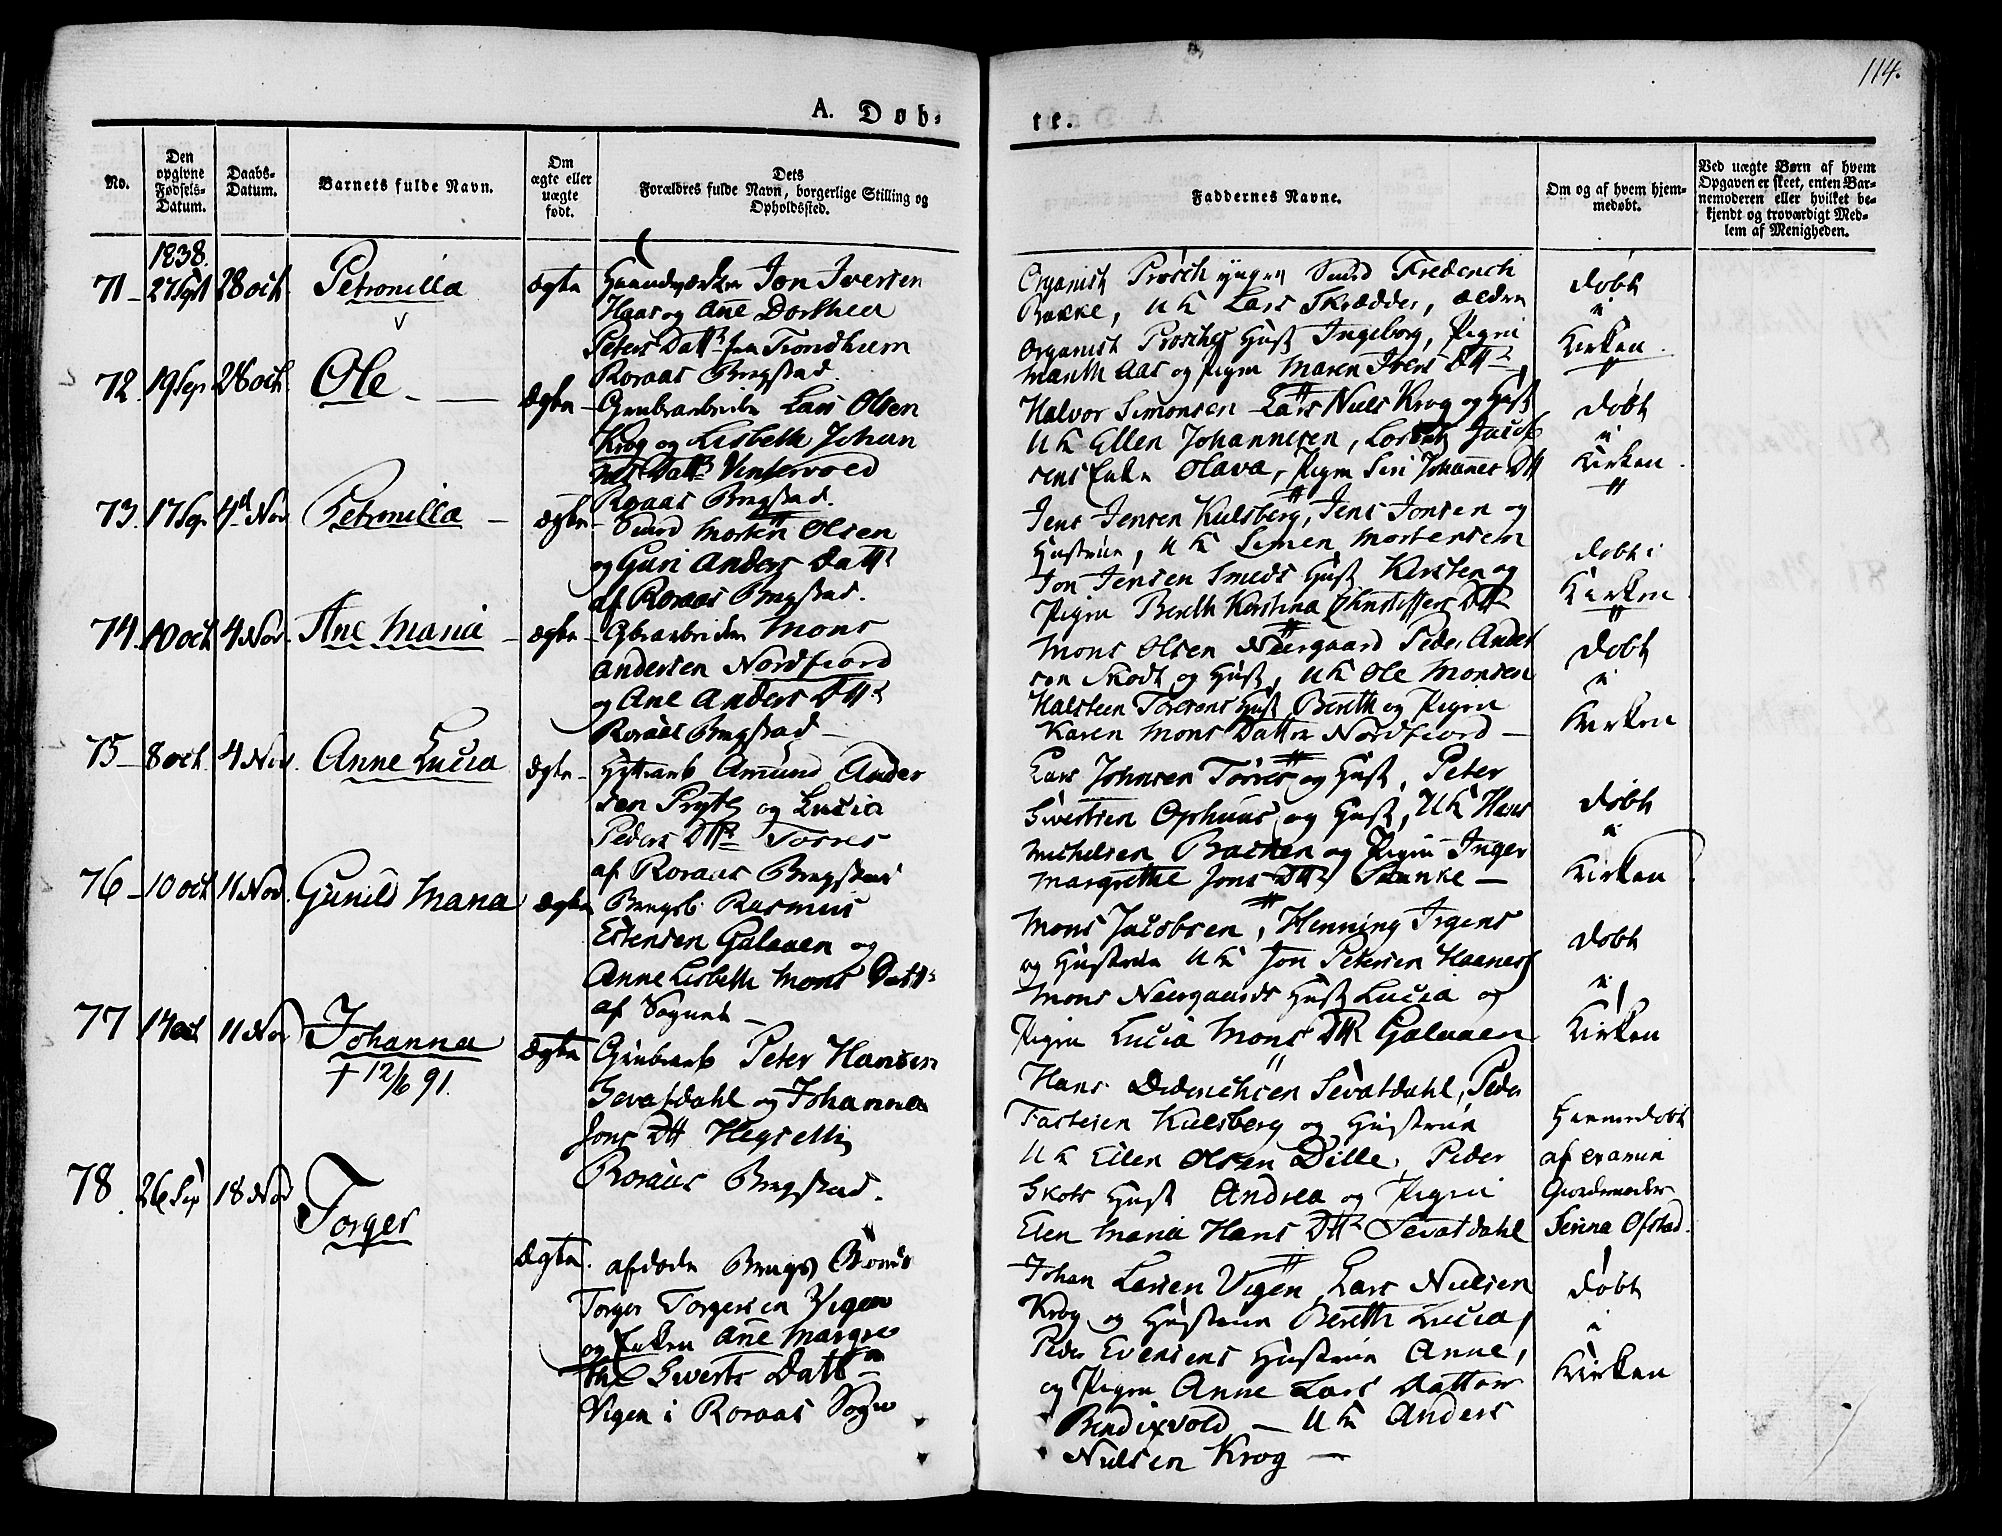 114.
A. Døb-
te.
No.
Den opgivne Fødsels-Datum.
Daabs-Datum.
Barnets fulde Navn.
Om ægte eller uægte født.
Dets Forældres fulde Navn, borgerlige Stilling og Opholdssted.
Faddernes Navne.
Om og af hvem hjem-medøbt.
Ved uægte Børn af hvem Opgaven er skeet, enten Bar-nemoderen eller hvilket be-kjendt og troværdigt Med-lem af Menigheden.
1838.
71 27 Sept 28 oct. Petronilla ægte
Haandværker Jon Iversen
Haas og Ane Dorthea
Peters Datt fra Trondhiem
Roraas Bergstad.
Organist Prosch Smed Frederich
Bakke, UK Lars Skrædder, ældre
Organist Prosches Hust Ingeborg, Pigen
Marith Aas og Pigen Maren Ivers Dtt
døbt
i
Kirken
72. 19 Sep 28 oct. Ole ægte
Grubearbeider Lars Olsen
Krog og Lisbeth Johan
nes Datt Vintervold
Roraas Bergstad.
Halvor Simonsen Lars Niels Krog og Hust
UK Ellen Johannesen, Jacob
sens Enke Olava, Pigen Siri Johannes Dtt
døbt
i
Kirken.
73. 17 Sep. 4d Nov Petronilla ægte
Smed Morten Olsen
og Guri Anders Datt
af Roraas Bergstad.
Jens Jensen Kulsberg, Jens Jonsen og
Hustrue, UK Simen Mortensen
Jon Jensen Smeds Hust Kirsten og
Pigen Berith Kerstina Christoffers Dtt
døbt i
Kirken
74. 10 oct 4 Nov. Ane Maria ægte
Mons
Andersen Nordfiord
og Ane Anders Dtt
Roraas Bergstad
Mons Olsen Neergaard Peder Ander
sen Skodt og Hust, UK Ole Monsen
Halsteen Toresens Hust Berith og Pigen
Karen Mons Datter Nordfiord
døbt
i
Kirken
75 8 oct. 4 Nov. Anne Lucia ægte
Hyttearb Amund Ander
sen Prytz og Lucia
Peders Dtt Torres
af Roraas Bergstad
Lars Johnsen Torres og Hust, Peter
Sivertsen Ophuus og Hust, UK Hans
Michelsen Backen og Pigen Inger
Margrethe Jons Dtt
døbt
i
Kirken
76 10 oct 11 Nov. Gunild Maria ægte
Rasmus
Estensen Galaaen og
Anne Lisbeth Mons Datt
af Sognet
Mons Jacobsen, Henning Irgens
og Hustrue UK Jon Petersen Haanes
Mons Neergaards Hust Lucia og
Pigen Lucia Mons Dtt Galaaen
døbt
i
Kirken
77 14 oct 11 Nov Johanna ægte
† 12/6 91.
Grubearb Peter Hansen
Sevatdahl og Johanna
Jons Dtt
Roraas Bergstad.
Hans Diderichsen Sevatdahl, Peder
Fastesen Kulsberg og Hustrue
UK Ellen Olsen Dille, Peder
Skots Hust Andrea og Pigen
Elen Maria Hans Dtt Sevatdahl
Hiemmedøbt
af examin
Giordemoder
Sinna Ofstad.
78. 26 Sep 18 Nov Torger ægte.
afdøde
Torger Torgersen Vigen
og Enken Ane Margre
the Siverts Datt
Vigen i Roraas Sogn
Johan Larsen Vigen, Lars Nielsen
Krog og Hustrue Berith Lucia,
Peder Evensens Hustrue Anne,
og Pigen Anne Lars Datter
Bendixvold — UK Anders
Nielsen Krog —
døbt
i
Kirken